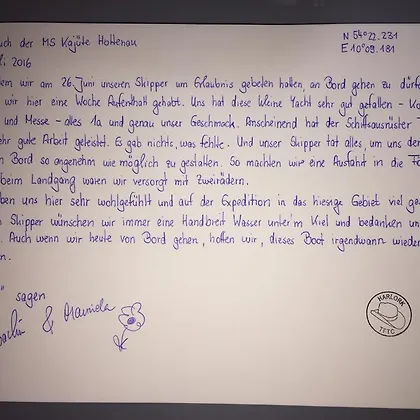 uch der MS Kajüte Holtenau
N 54°22.231
E 10°09.181
li 2016
em wir am 26. Juni unseren Skipper um Erlaubnis gebeten hatten, an Bord gehen zu dürfe
wir hier eine Woche Aufenthalt gehabt. Uns hat diese kleine Yacht sehr gut gefallen - Ko
und Messe - alles 1a und genau unser Geschmack. Anscheinend hat der Schiffsausrüster
ehr gute Arbeit geleistet. Es gab nichts, was fehlte. Und unser Skipper tat alles, um uns der
n Bord so angenehm wie möglich zu gestalten. So machten wir eine Ausfahrt in die
beim Landgang waren wir versorgt mit Zweirädern.
ben uns hier sehr wohlgefühlt und auf der Expedition in das hiesige Gebiet viel ge
n Skipper wünschen wir immer eine Handbreit Wasser unter'm Kiel und bedanken un
. Auch wenn wir heute von Bord gehen, hoffen wir, dieses Boot irgendwann wieder
n.
" sagen
& Manuela
HARLORK
TFTC